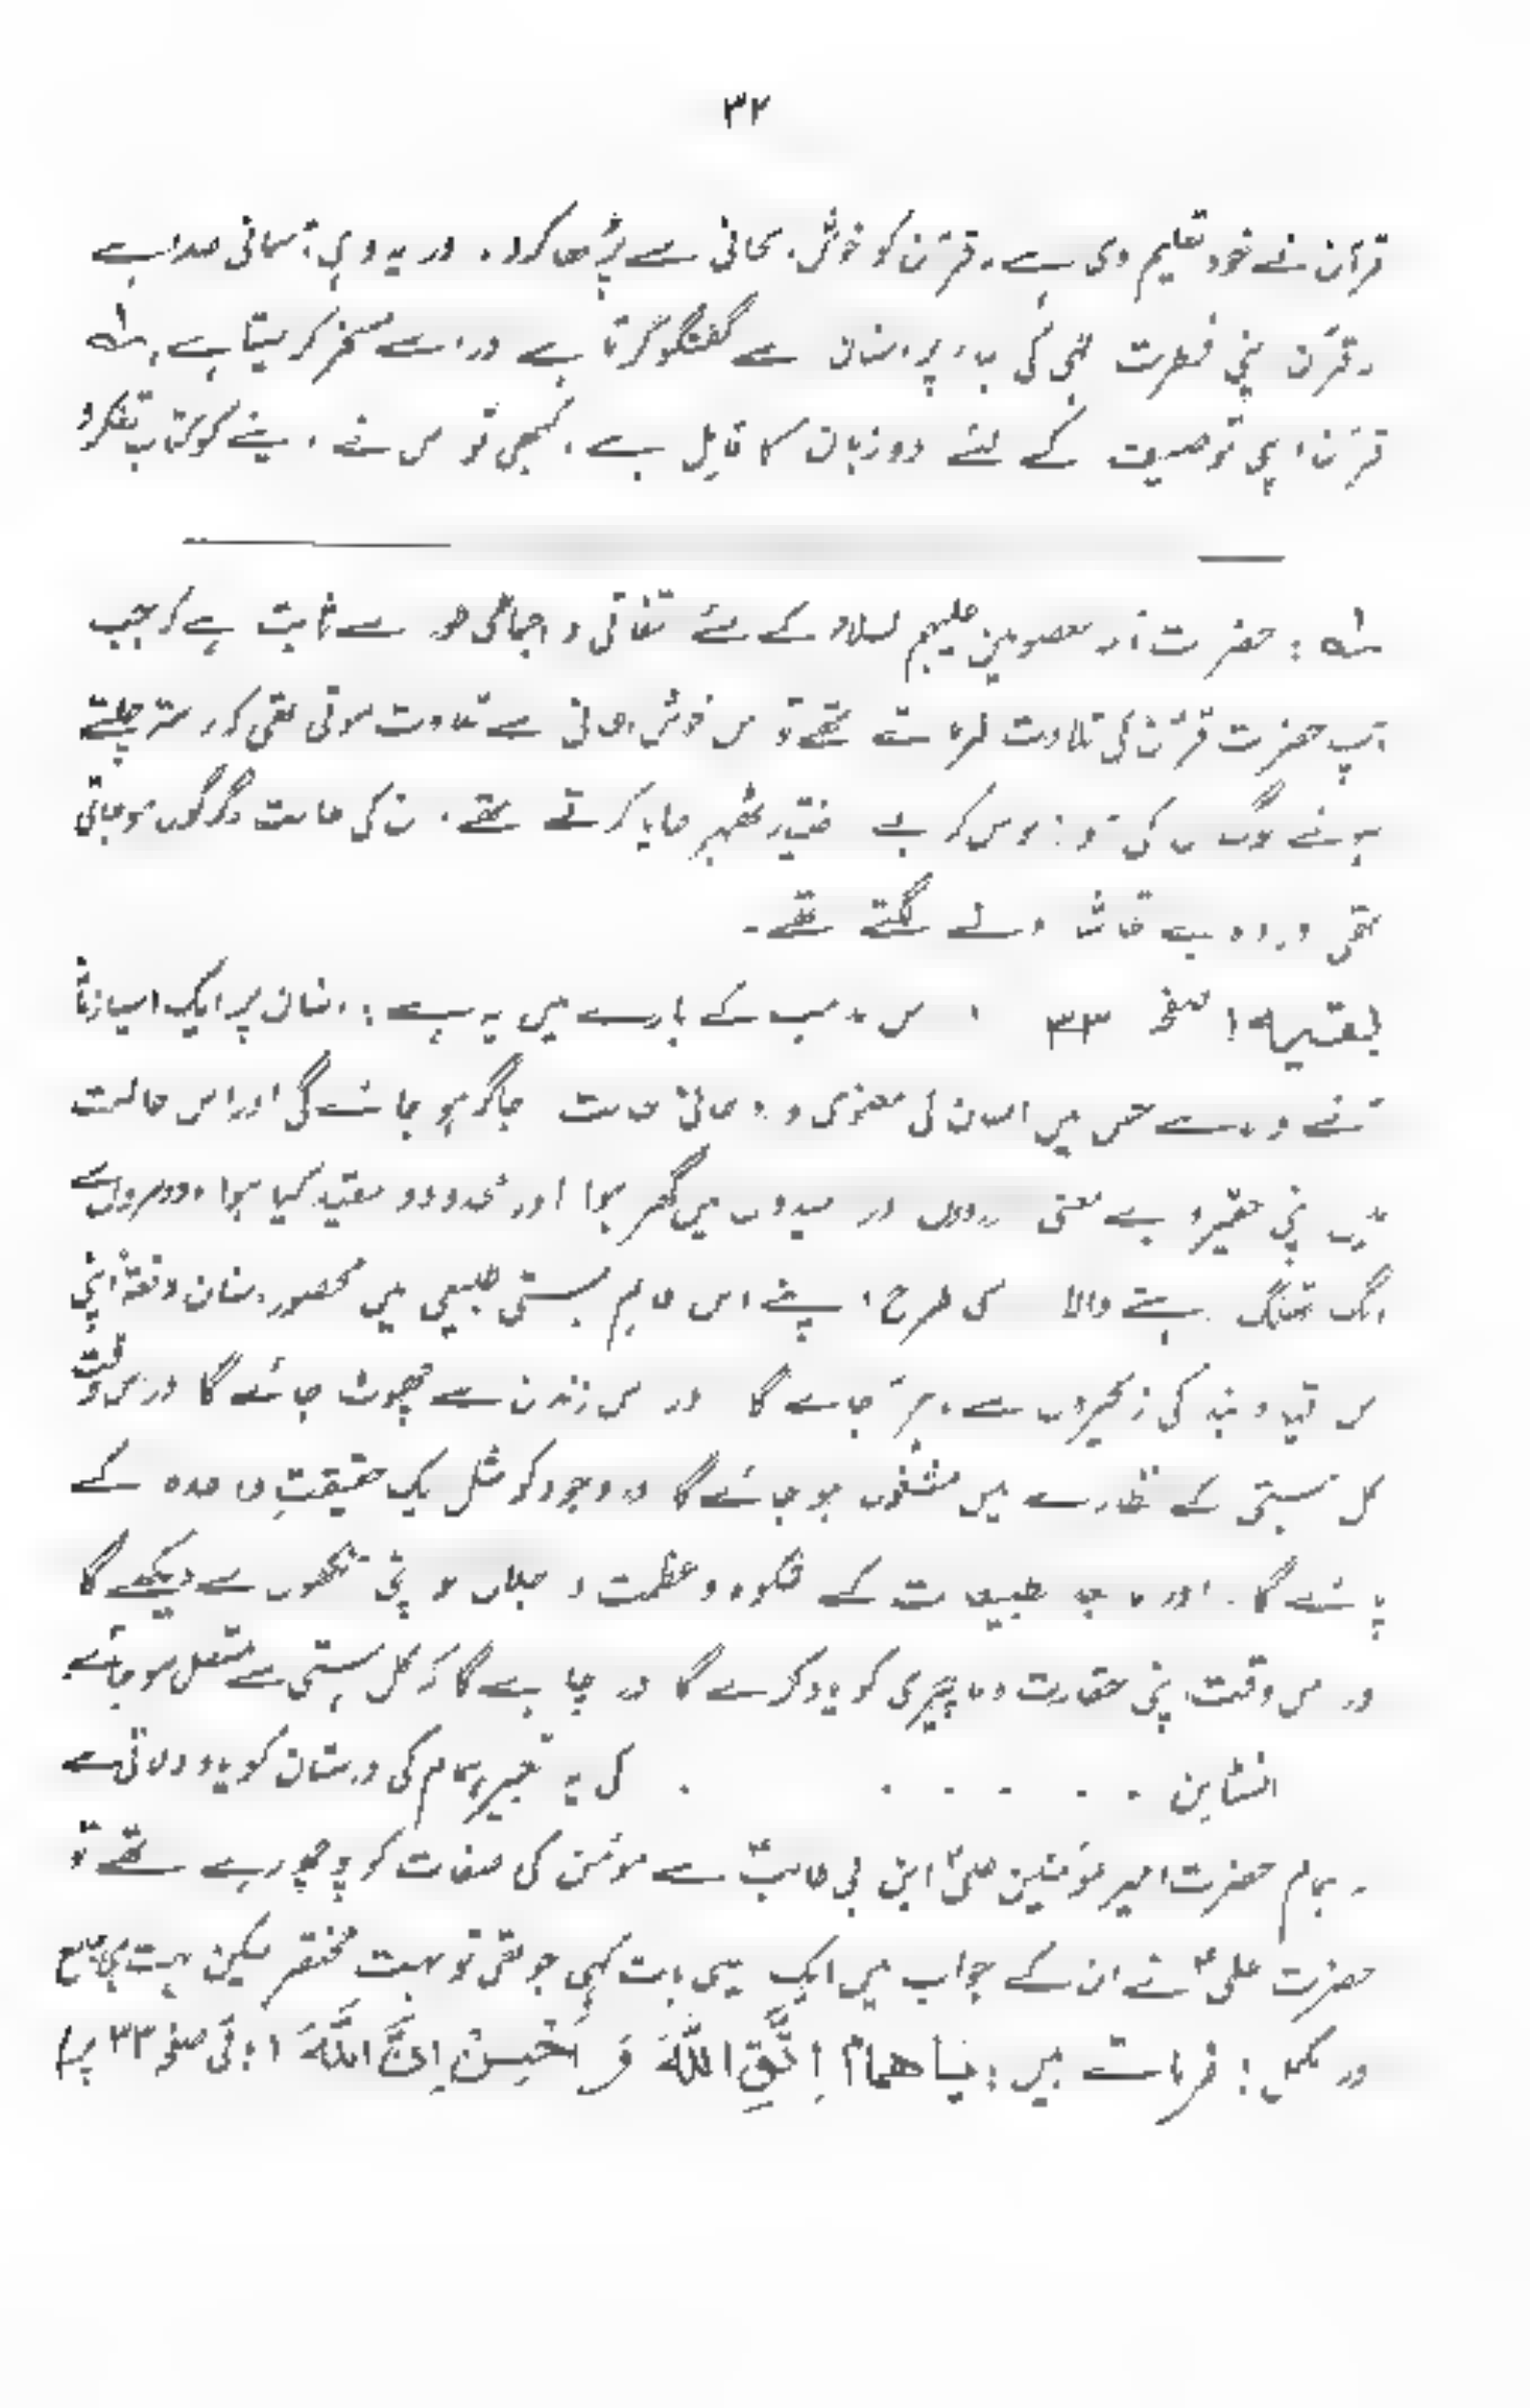 ۳۲
قرآن نے خود تعلیم دی ہے، قرآن کو خوش الحانی سے پڑھا کرو، اور یہ وہی آسمانی صدا ہے
قرآن اپنی فطرت کی پر انسان سے گفتگو کرتا ہے اور اسے مسخر کر لیتا ہے،
قرآن اپنی توصیف کے لئے دو زبان کا قائل ہے، کبھی تو اس نے اپنے کو کتاب تفکر و
حضرت ائمہ معصومین علیہم السلام کے لئے اتفاقی و اجماعی طور سے ثابت ہے کہ جب
آپ حضرت قرآن کی تلاوت فرماتے تھے تو اس خوش الحانی سے تلاوت ہوتی تھی کہ رستہ چلتے
ہوئے لوگ ان کی آواز سن کر بے اختیار ٹھہر جایا کرتے تھے، ان کی حالت دگرگوں ہو جاتی
تھی اور وہ بے تحاشا رونے لگتے تھے۔
بقیہ صفحہ ۳۳ اس کے بارے میں یہ ہے: انسان پر ایک ایسا زمانہ
آنے والا ہے جس میں انسان کی معنوی و روحانی حالت جاگر ہو جائے گی اور اس حالت
میں اپنی حقیر و بے معنی اور امیدوں میں گھرا ہوا اور محدود و مقید کیا ہوا، دوسروں سے
الگ تھلگ رہنے والا کی طرح، اپنے اس عالم ہستی طبیعی میں محصور انسان دفعۃً اپنی
اس قید و بند کی زنجیروں سے باہر آ جائے گا اور اس زندان سے چھوٹ جائے گا اور اس وقت
کل ہستی کے نظارے میں مشغول ہو جائے گا اور وجود کو مثل ایک حقیقتِ واحدہ کے
پائے گا۔ اور طبیعات کے شکوہ و عظمت و جلال کو اپنی آنکھوں سے دیکھے گا
اور اس وقت اپنی حقارت و ناچیزی کو یاد کرے گا اور چاہے گا کہ کل ہستی سے متصل ہو جائے
انشٹاین . . . . . . کی یہ تعبیر ہمام کی داستان کو یاد دلاتی ہے
ہمام حضرت امیر المؤمنین علیؑ ابن ابی طالبؑ سے مومن کی صفات کو پوچھ رہے تھے تو
حضرت علیؑ نے ان کے جواب میں ایک ایسی بات کہی جو تھی تو بہت مختصر لیکن بہت ہی جامع
اور مکمل! فرماتے ہیں: یَا هَمَّامُ اِتَّقِ اللّٰهَ وَ اَحْسِنْ اِنَّ اللّٰهَ (باقی صفحہ ۳۳ پر)